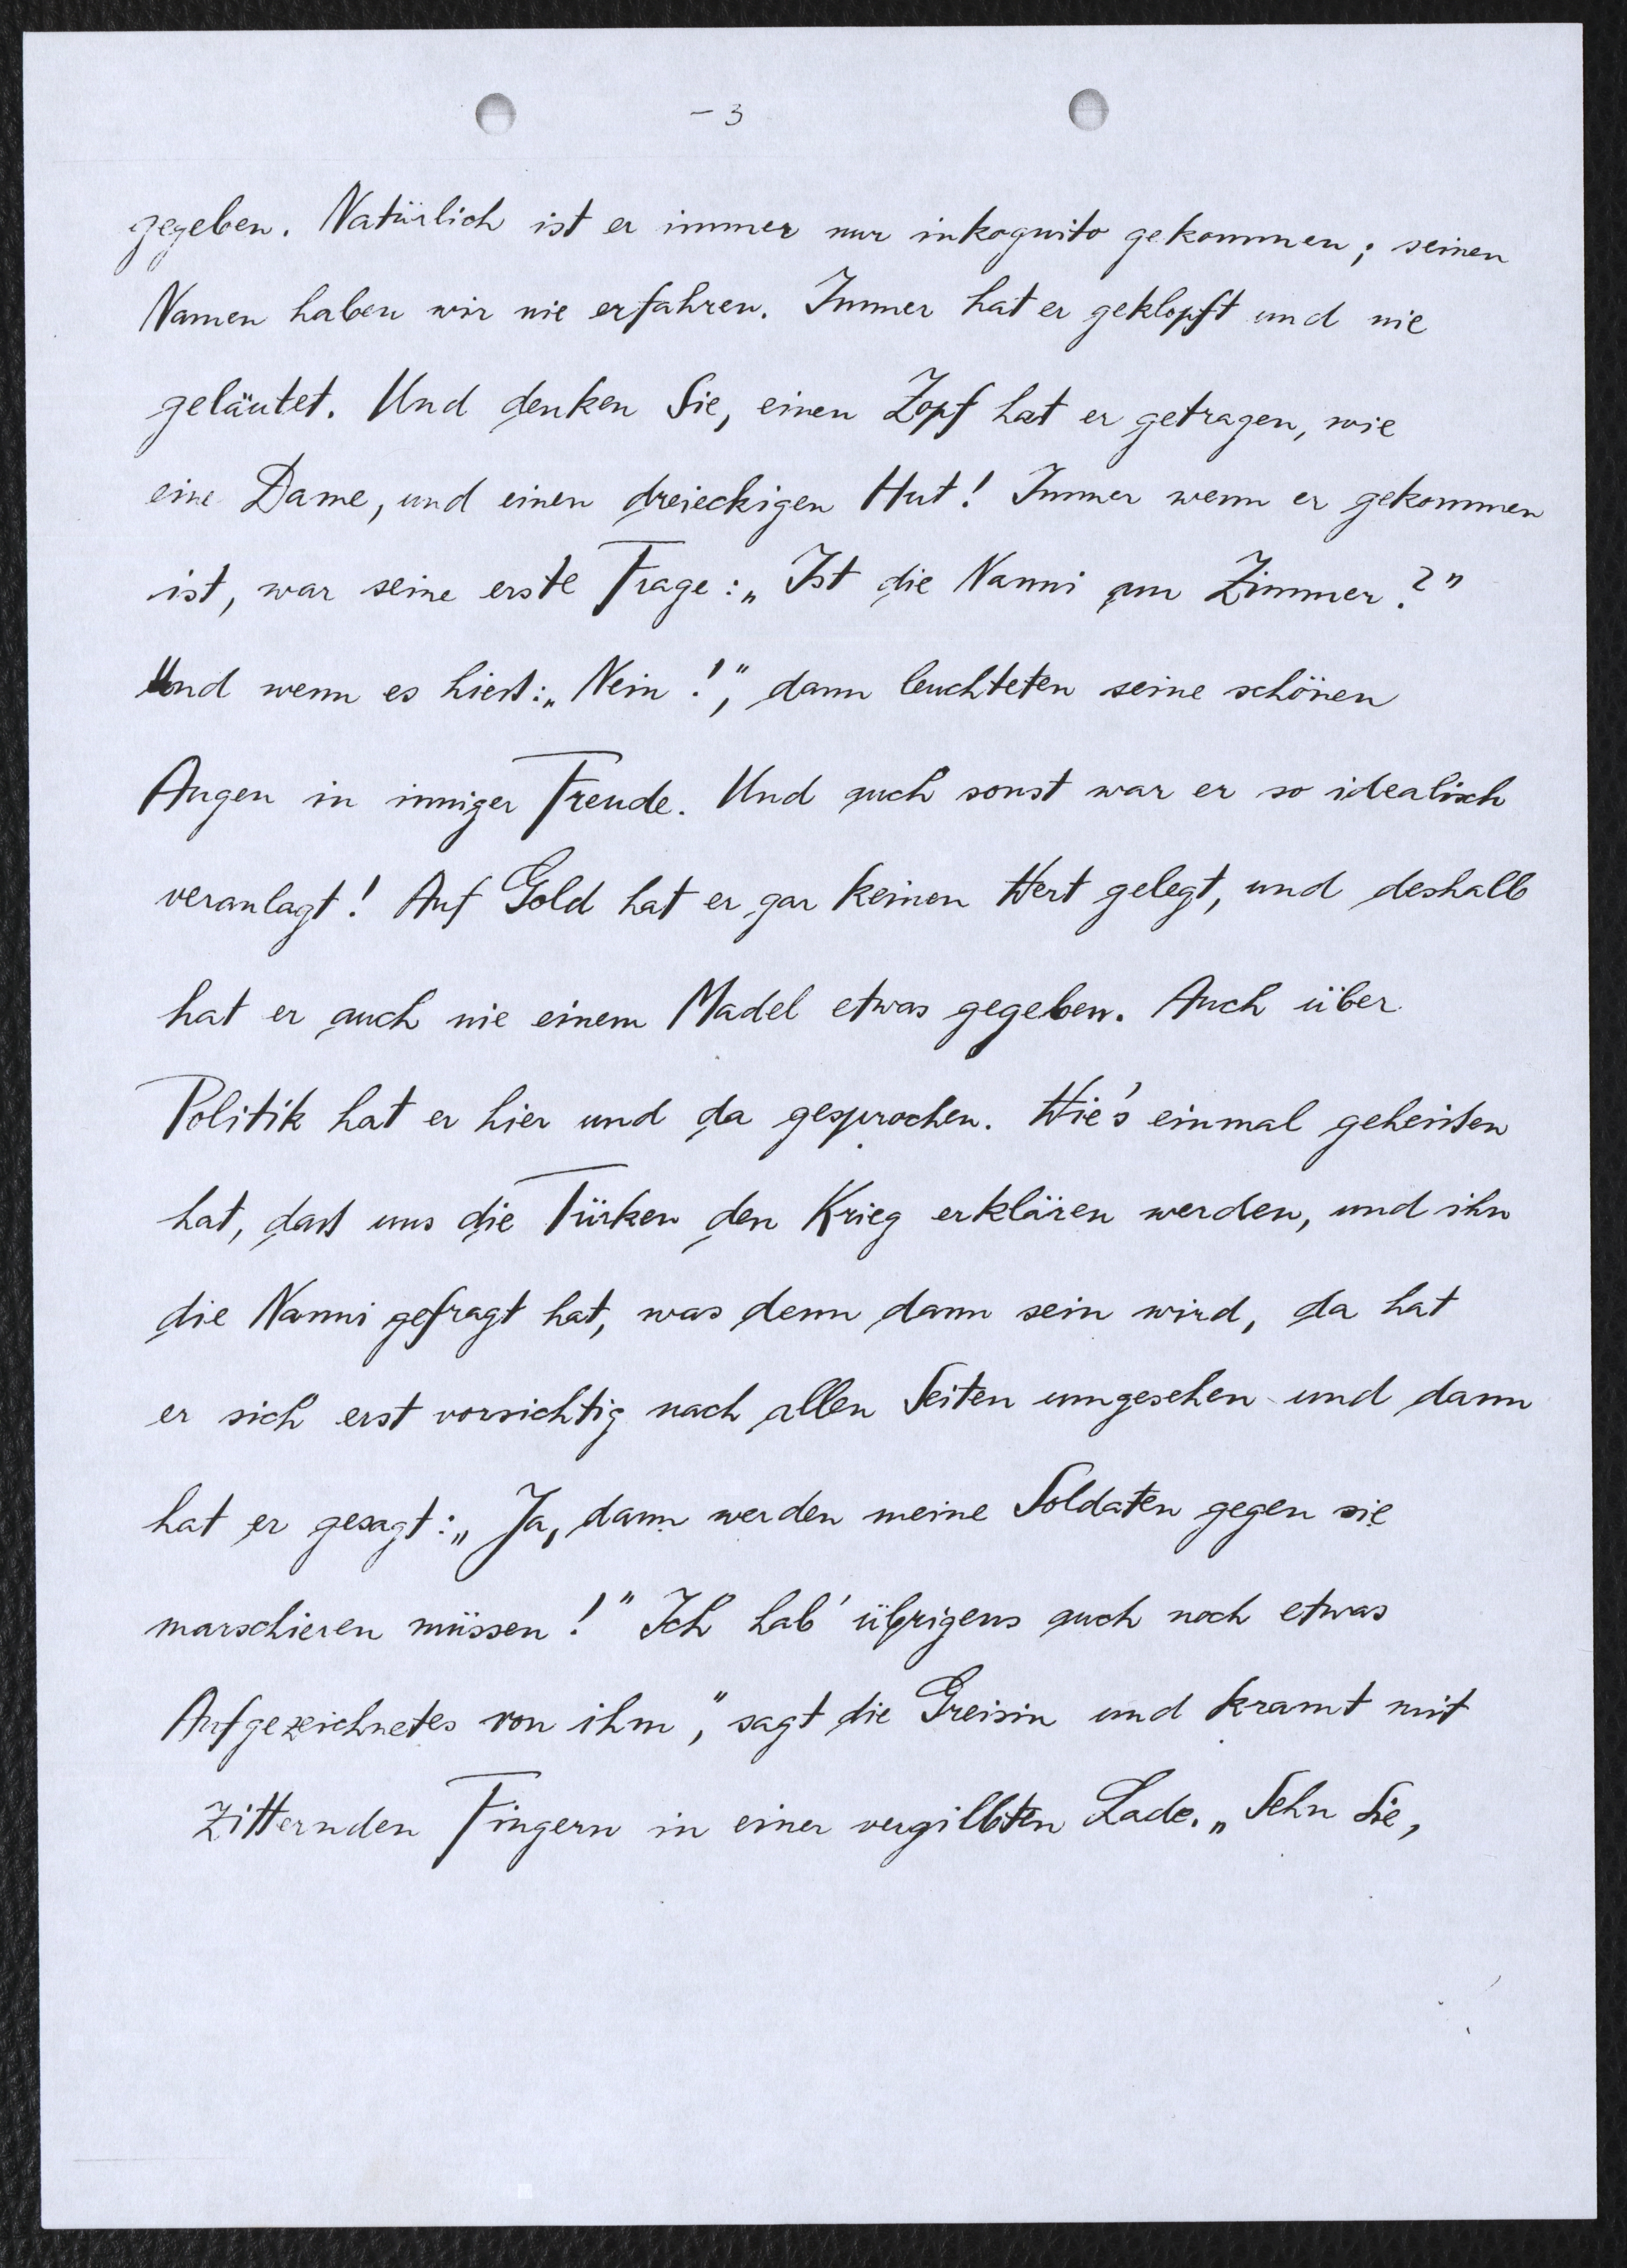 – 3
gegeben. Natürlich ist er immer nur inkognito gekommen; seinen
Namen haben wir nie erfahren. Immer hat er geklopft und nie
geläutet. Und denken Sie, einen Zopf hat er getragen, wie
eine Dame, und einen dreieckigen Hut! Immer wenn er gekommen
ist, war seine erste Frage: „Ist die Nanni am Zimmer?"
Und wenn es hieß: „Nein!", dann leuchteten seine schönen
Augen in inniger Freude. Und auch sonst war er so idealisch
veranlagt! Auf Gold hat er gar keinen Wert gelegt, und deshalb
hat er auch nie einem Madel etwas gegeben. Auch über
Politik hat er hier und da gesprochen. Wie's einmal geheißen
hat, daß uns die Türken den Krieg erklären werden, und ihn
die Nanni gefragt hat, was denn dann sein wird, da hat
er sich erst vorsichtig nach allen Seiten umgesehen und dann
hat er gesagt: „Ja, dann werden meine Soldaten gegen sie
marschieren müssen!" Ich hab' übrigens auch noch etwas
Aufgezeichnetes von ihm", sagt die Greisin und kramt mit
zitternden Fingern in einer vergilbten Lade. „Sehn Sie,